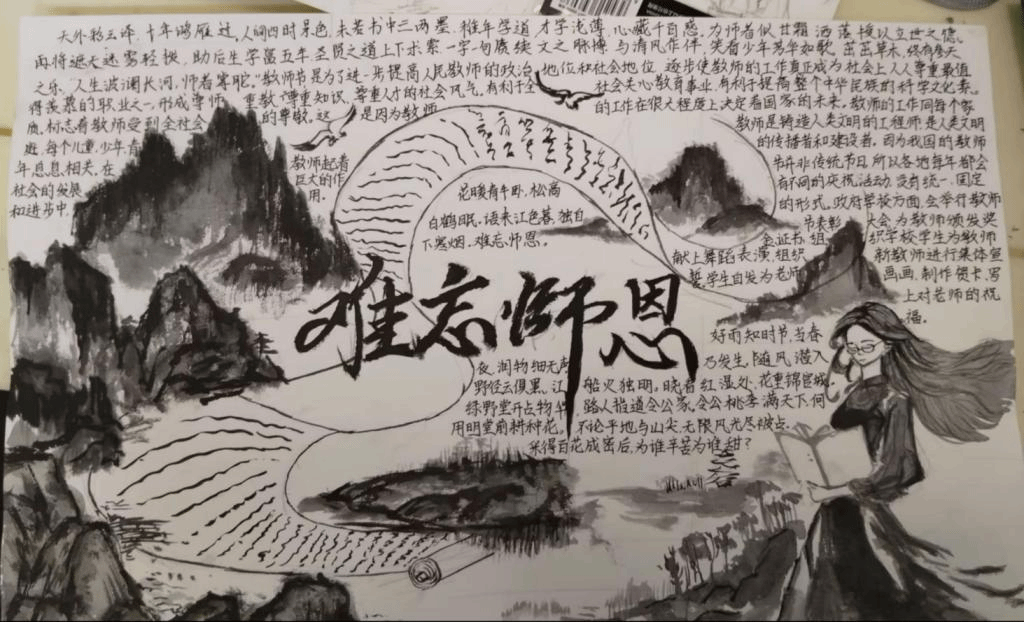 天外粉云译，十年鸿雁过，人间四时景色，未若书中三两墨，稚年学道，才学浅薄，心藏千百惑，为师者似甘霜洒落，授以立世之德。
再将遮天迷雾轻拨，助后生学富五车，圣贤之道上下求索，一字一句赓续文之脉搏，与清风作伴，笑看少年芳华如歌，茁茁草木，终有参天
之乐，人生波澜长河，师者掌舵。“教师节是为了进一步提高人民教师的政治地位和社会地位，逐步使教师的工作真正成为社会上人人尊重最值
得羡慕的职业之一，形成尊师、重教、尊重知识、尊重人才的社会风气，有利于全社会关心教育事业，有利于提高整个中华民族的科学文化素
质，标志着教师受到全社会的尊敬，这是因为教师的工作在很大程度上决定着国家的未来。教师的工作同每个家
庭、每个儿童、少年、青
年息息相关，在
社会的发展
和进步中，
教师起着
巨大的作
用。
教师是铸造人类文明的工程师，是人类文明
的传播者和建设者。因为我国的教师
节并非传统节日，所以各地每年都会
有不同的庆祝活动，没有统一、固定
的形式，政府学校方面，会举行教师
节表彰大会，为教师颁发奖
金、证书，组织学校学生为教师
献上舞蹈表演，组织新教师进行集体宣
誓，学生自发为老师画画，制作贺卡，写
上对老师的祝
福。
花暖青牛卧，松高
白鹤眠。语来江色暮，独自
下寒烟。难忘师恩。
难忘师恩
好雨知时节，当春
乃发生，随风潜入
夜，润物细无声
野径云俱黑，江船火独明，晓看红湿处，花重锦官城。
绿野堂开占物华，路人指道令公家，令公桃李满天下，何
用明堂前耕种花，不论平地与山尖，无限风光尽被占。
采得百花成蜜后，为谁辛苦为谁甜？